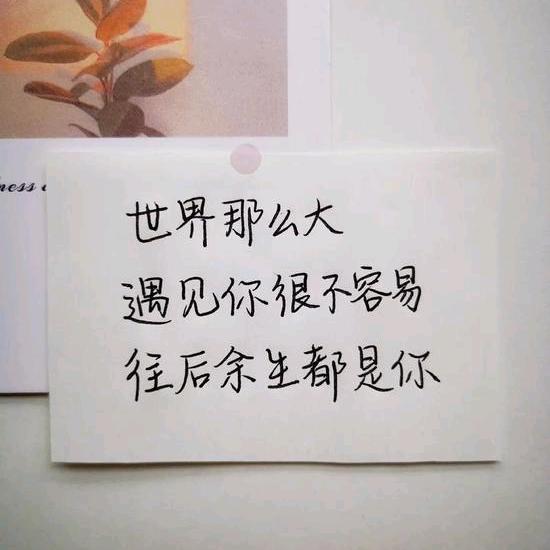 ness
世界那么大
遇见你很不容易
往后余生都是你